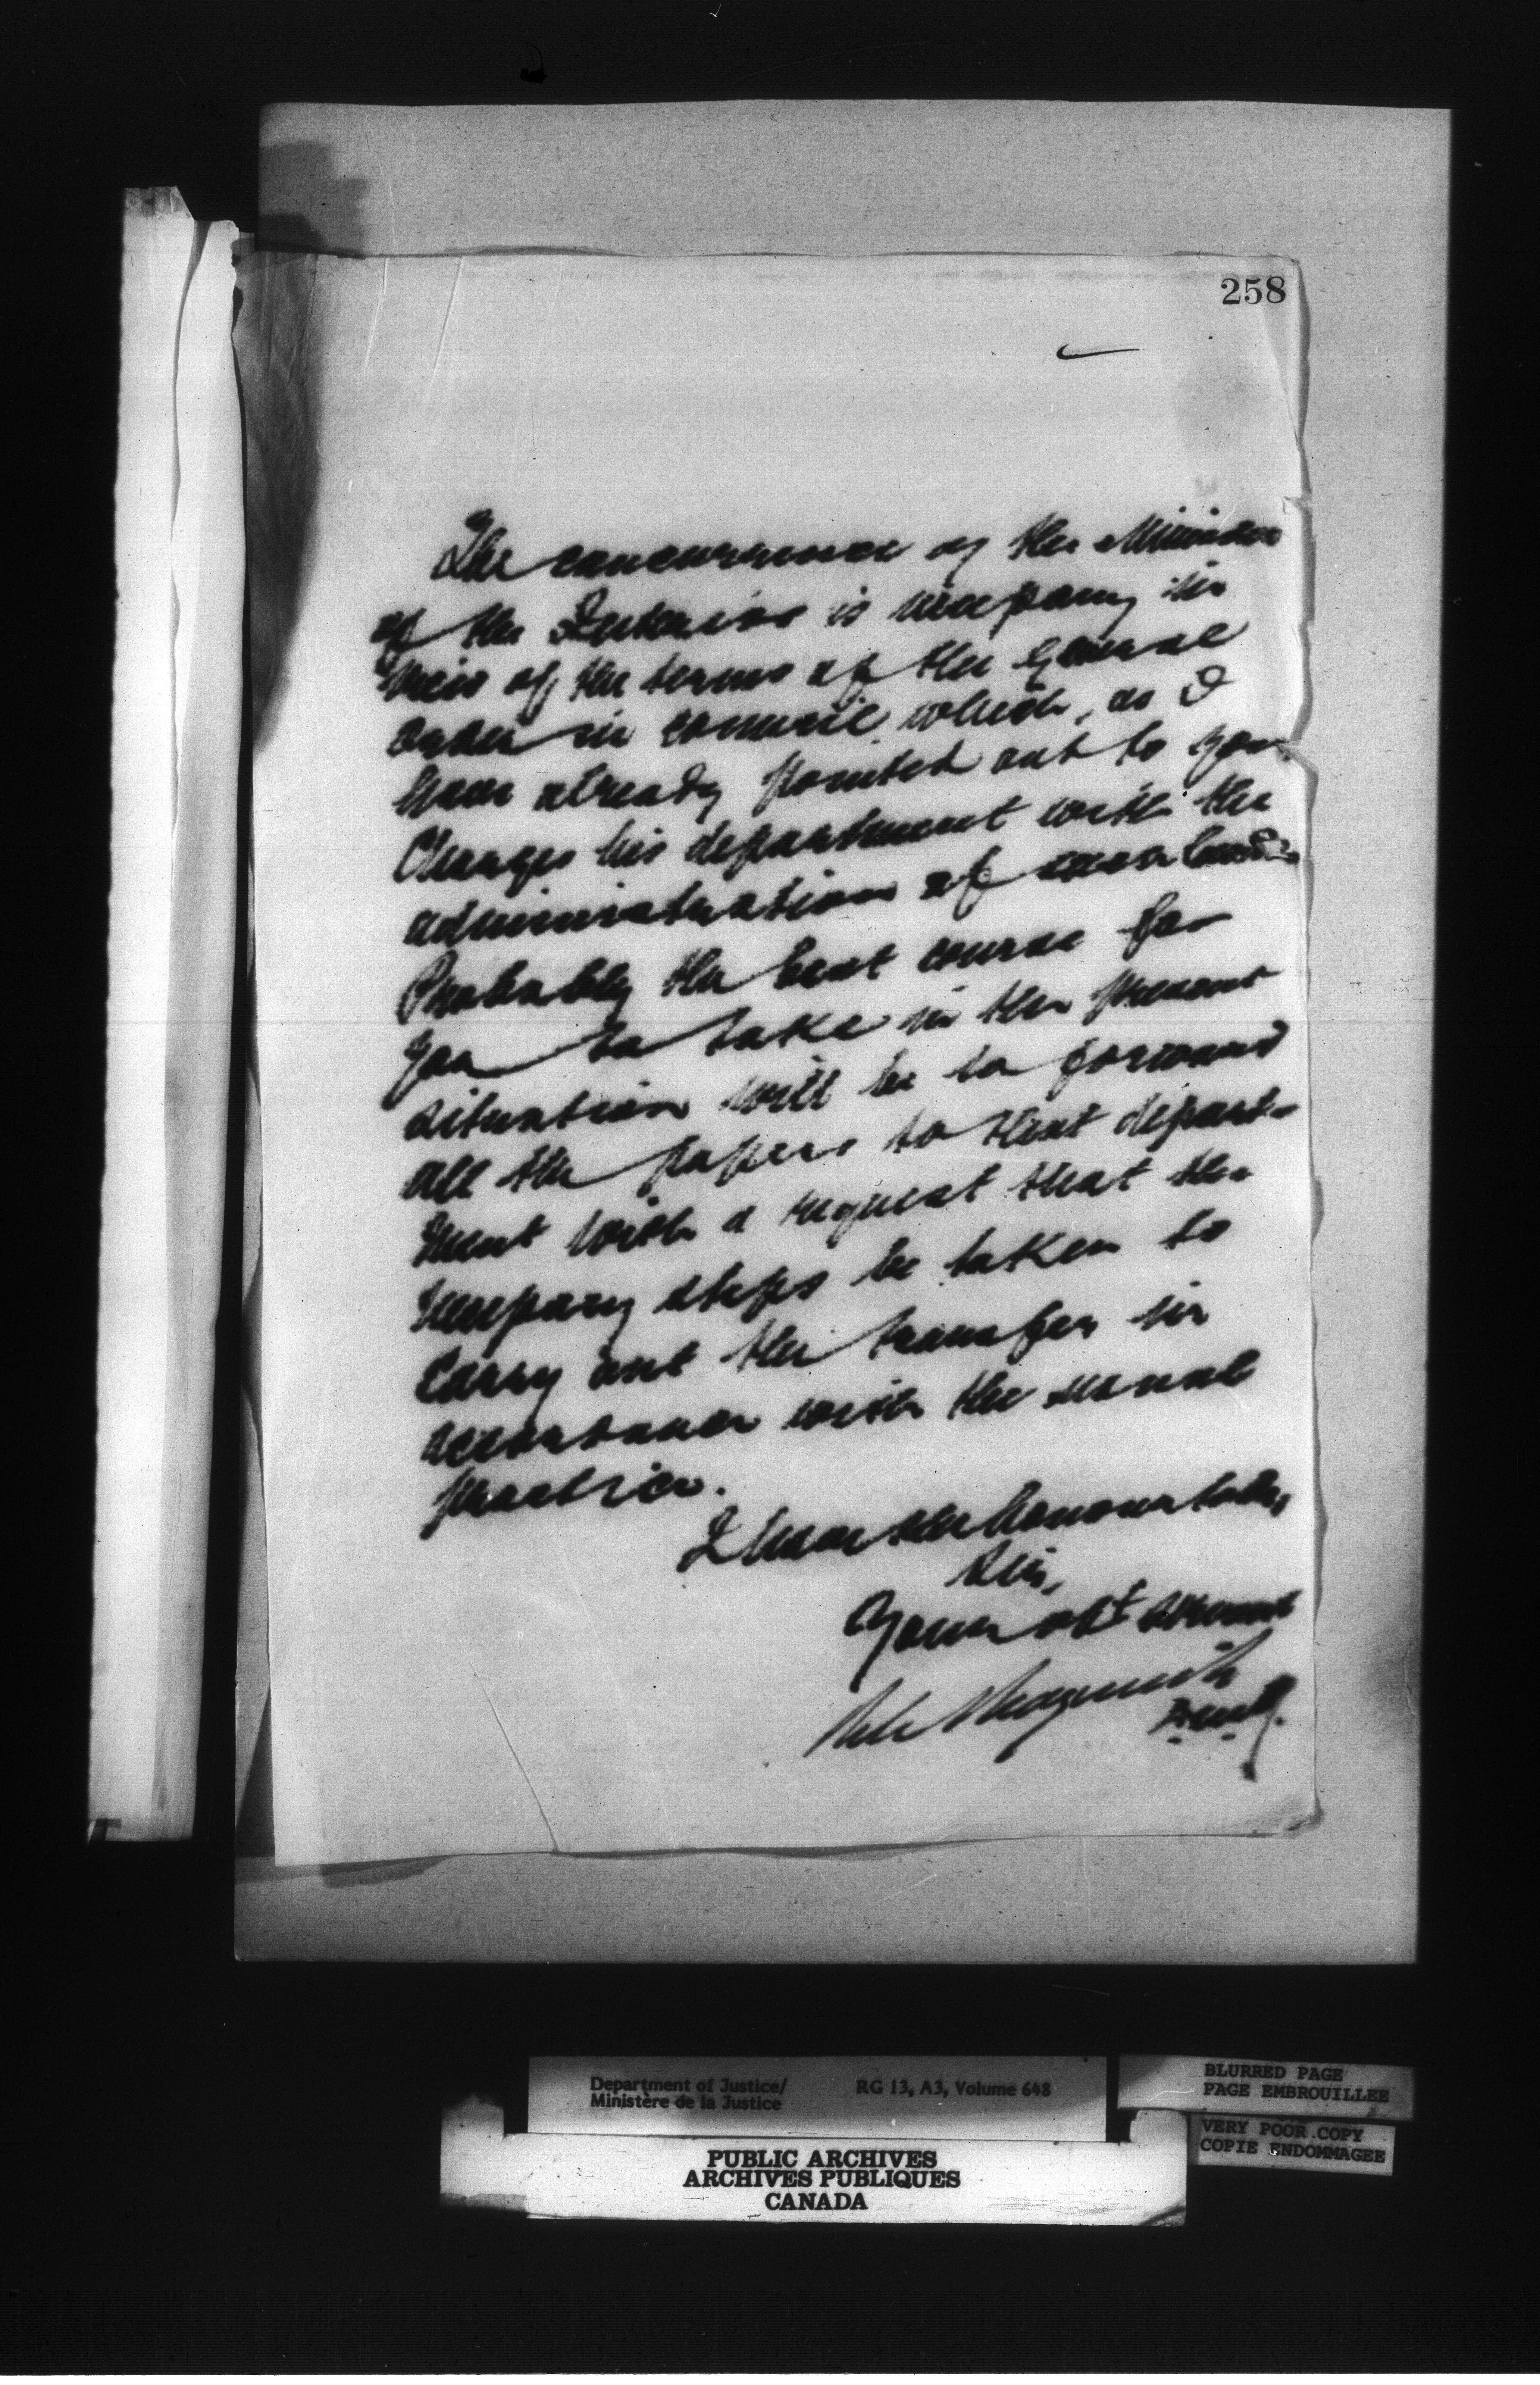 258
The concurrence of the Minister
of the Interior is necessary in
view of the terms of the general
order in council which, as I
have already pointed out to you
charges his department with the
administration of
Probably the best course for
you to take in the present
situation will be to forward
all the papers to that depart-
ment with a request that the
necessary steps be taken to
carry out the transfer in
accordance with the usual
practice.
I have the honour to be,
Sir,
Your obt servant
D.M.J.
Department of Justice/ RG 13, A3, Volume 648
Ministère de la Justice
BLURRED PAGE
PAGE EMBROUILLEE
VERY POOR COPY
COPIE ENDOMMAGEE
PUBLIC ARCHIVES
ARCHIVES PUBLIQUES
CANADA